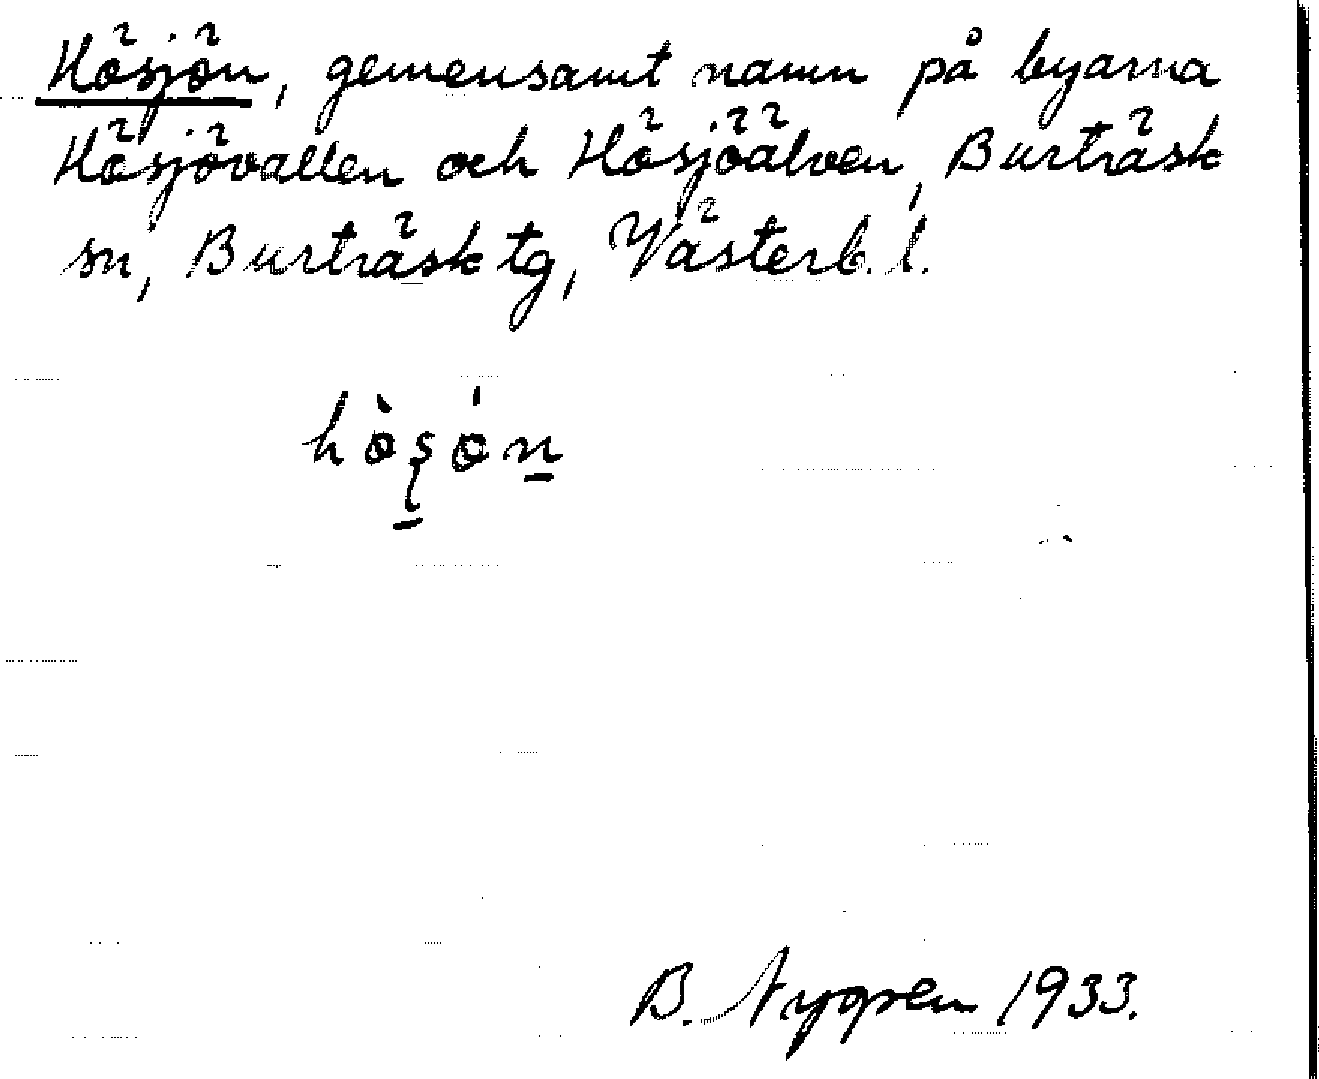 Hösjön, gemensamt namn på byarna
Hösjövallen och Hösjöälven, Burträsk
sn, Burträsk tg, Västerb. l.
B. Nygren 1933.